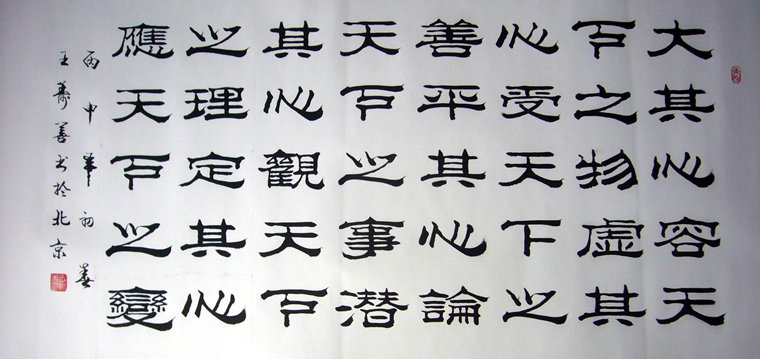 大其心容天
下之物虚其
心受天下之
善平其心論
天下之事潜
其心觀天下
之理定其心
應天下之變
丙申年初春
王壽善书於北京